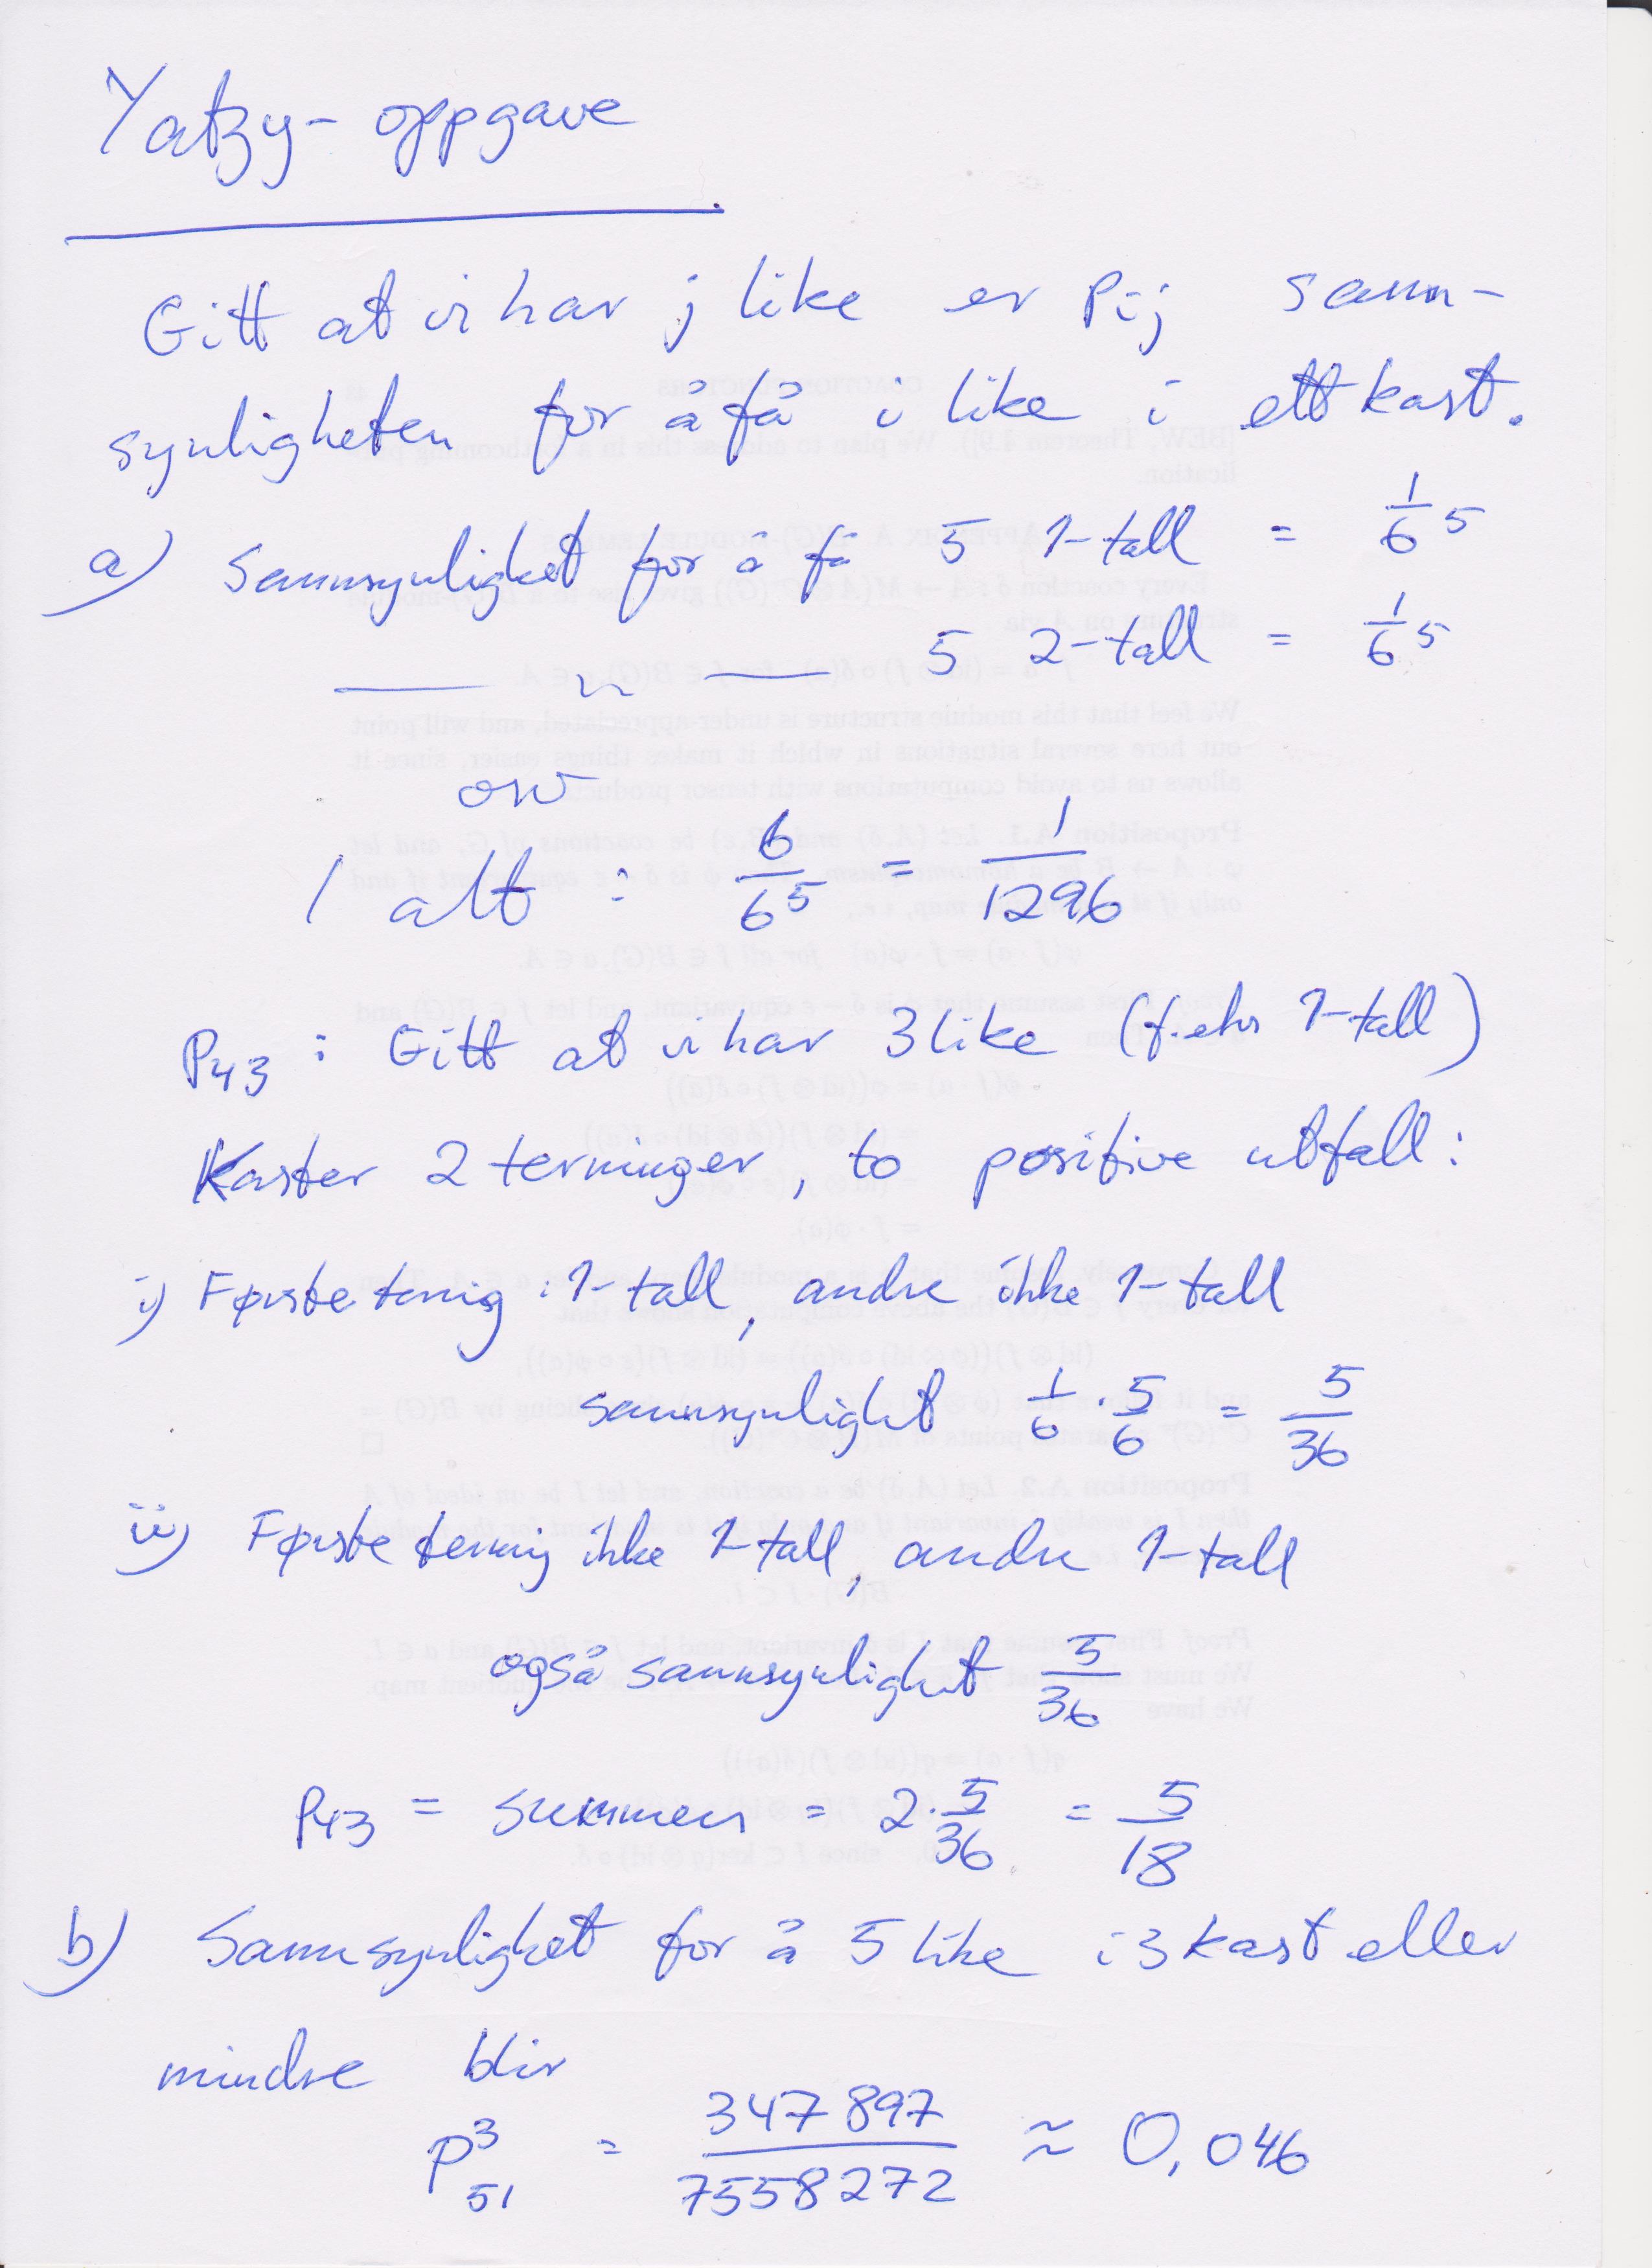 Yatzy-oppgave
Gitt at vi har j like er Pij sann-
synligheten for å få i like i ett kast.
a) Sannsynlighet for å få 5 1-tall = 1/6 5
5 2-tall = 1/6 5
osv
I alt : 6/6^5 = 1/1296
P43 : Gitt at vi har 3 like (f.eks 1-tall)
Kaster 2 terninger, to positive utfall:
i) Første terning : 1-tall, andre ikke 1-tall
sannsynlighet 1/6 · 5/6 = 5/36
ii) Første terning ikke 1-tall, andre 1-tall
også sannsynlighet 5/36
P43 = summen = 2 · 5/36 = 5/18
b) Sannsynlighet for å 5 like i 3 kast eller
mindre blir
P^3_51 = 347 897/7558272 ≈ 0,046